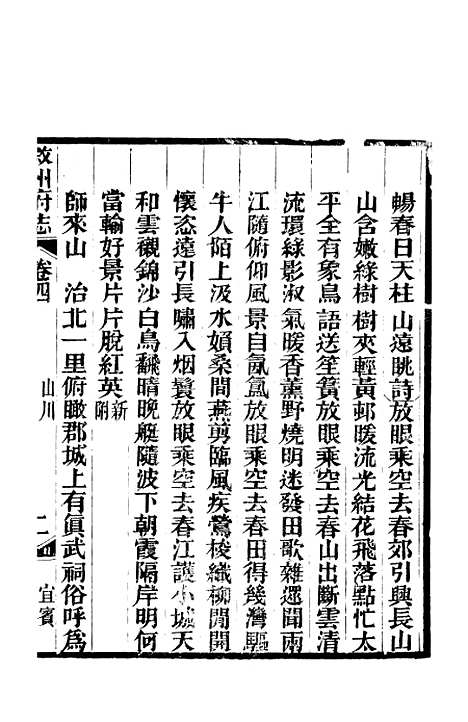 暢春日天柱山遠眺詩放眼乘空去春郊引興長山
山含嫩綠樹樹夾輕黃邨暖流光結花飛落點忙太
平全有象鳥語送笙簧放眼乘空去春山出斷雲清
流環綠影淑氣暖香薰野燒明迷發田歌雜遝聞兩
江隨俯仰風景自氤氳放眼乘空去春田得幾灣驅
牛人陌上汲水媍桑間燕剪臨風疾鶯梭織柳閒開
懷恣遠引長嘯入烟鬟放眼乘空去春江護小城天
和雲襯錦沙白鳥翻晴晚艇隨波下朝霞隔岸明何
當輸好景片片脫紅英新附
師來山 治北一里俯瞰郡城上有眞武祠俗呼爲
敘州府志 卷四 山川 二 宜賓